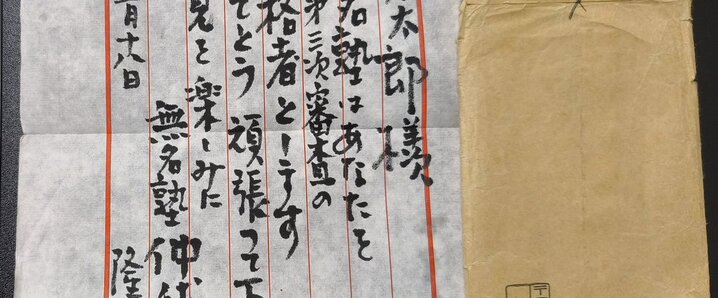 太郎様
名塾はあなたを
第三次審査の
格者とします
でとう 頑張って下
見を楽しみに
無名塾 仲代
隆
月十八日
〒